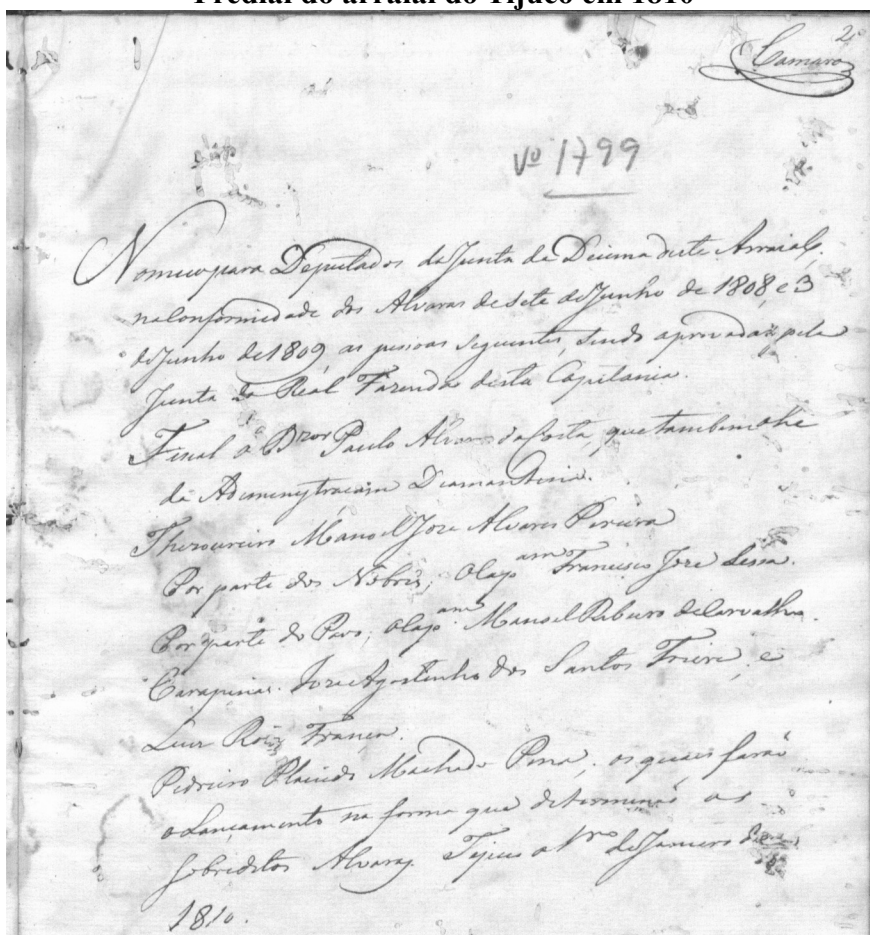 Predial do arraial do Tijuco em 1810
2
Camara
Vº 1799
Nomeio para Deputados da Junta da Decima deste Arraial,
na conformidade dos Alvaras de sete de Junho de 1808, e 3
de Junho de 1809, as pessoas seguintes, sendo aprovadas pela
Junta da Real Fazenda desta Capitania.
Fiscal o Dzor Paulo Alvares da Costa, que tambem o he
daAdemenystracaim Diamantina.
Thezoureiro Manoel Joze Alvares Pereira
Por parte dos Nobres, o Capam Francisco Joze Lessa.
Por parte do Povo, o Capam Manoel Ribeiro de Carvalho.
Carapinas. Joze Agostinho dos Santos Friere, e
Luiz Roiz França.
Pedreiro Placido Machado Pena, os quais farão
o Lançamento na forma que determinão os
sobreditos Alvaraz. Tejuco o 1ro de Janeiro de
1810.